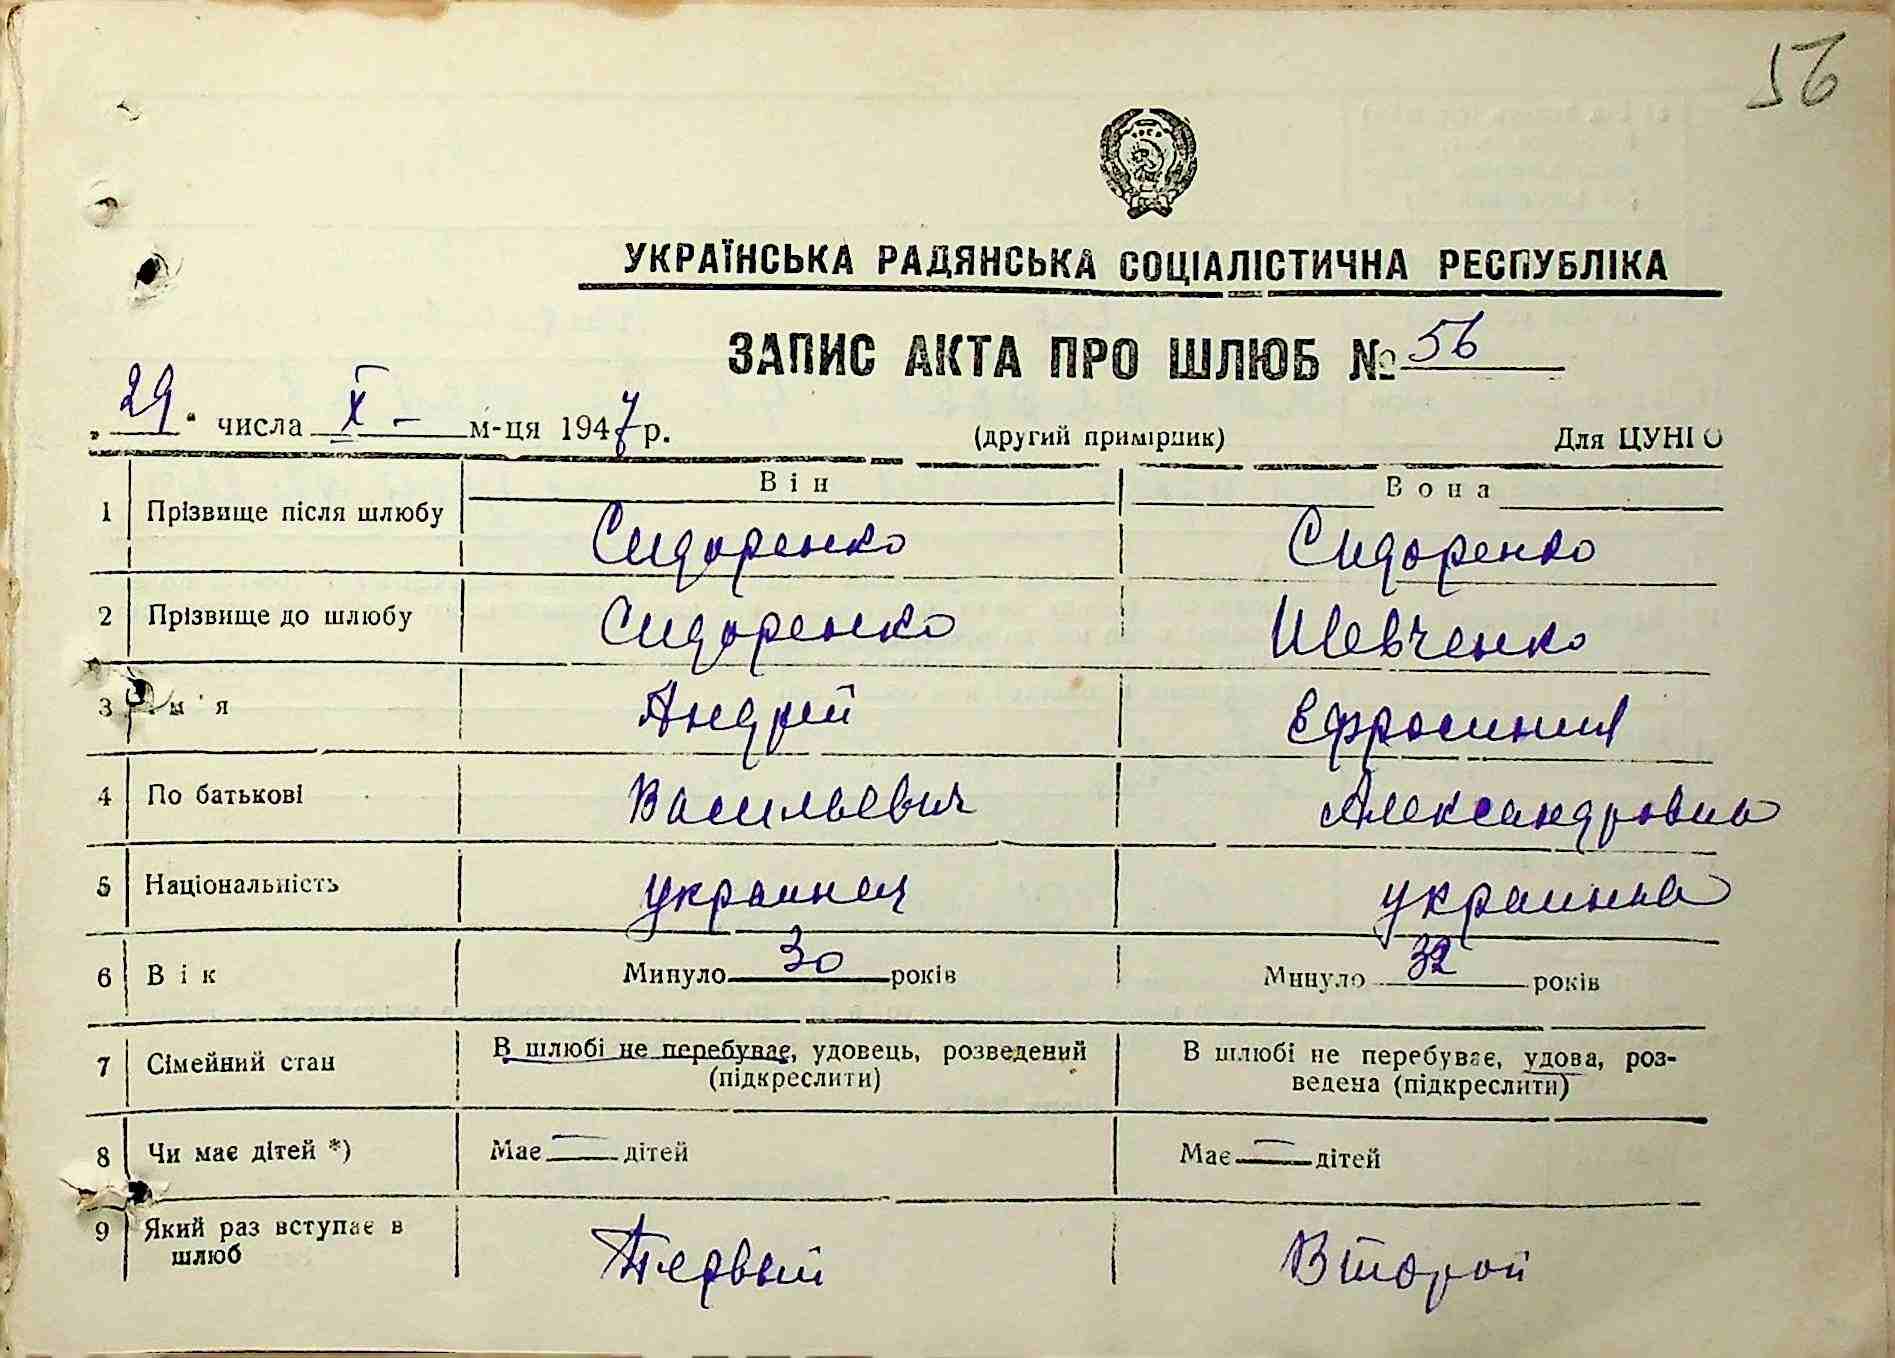 56
УКРАЇНСЬКА РАДЯНСЬКА СОЦІАЛІСТИЧНА РЕСПУБЛІКА
ЗАПИС АКТА ПРО ШЛЮБ № 56
„29“ числа X - м-ця 1947 р. (другий примірник) Для ЦУНГО
Він Вона
1 Прізвище після шлюбу Сидоренко Сидоренко
2 Прізвище до шлюбу Сидоренко Шевченко
3 м'я Андрей Ефросиния
4 По батькові Васильевич Александровна
5 Національність украинец украинка
6 Вік Минуло 30 років Минуло 32 років
7 Сімейний стан В шлюбі не перебуває, удовець, розведений (підкреслити) В шлюбі не перебуває, удова, роз-
ведена (підкреслити)
8 Чи має дітей *) Має — дітей Має — дітей
9 Який раз вступає в шлюб Первый Второй